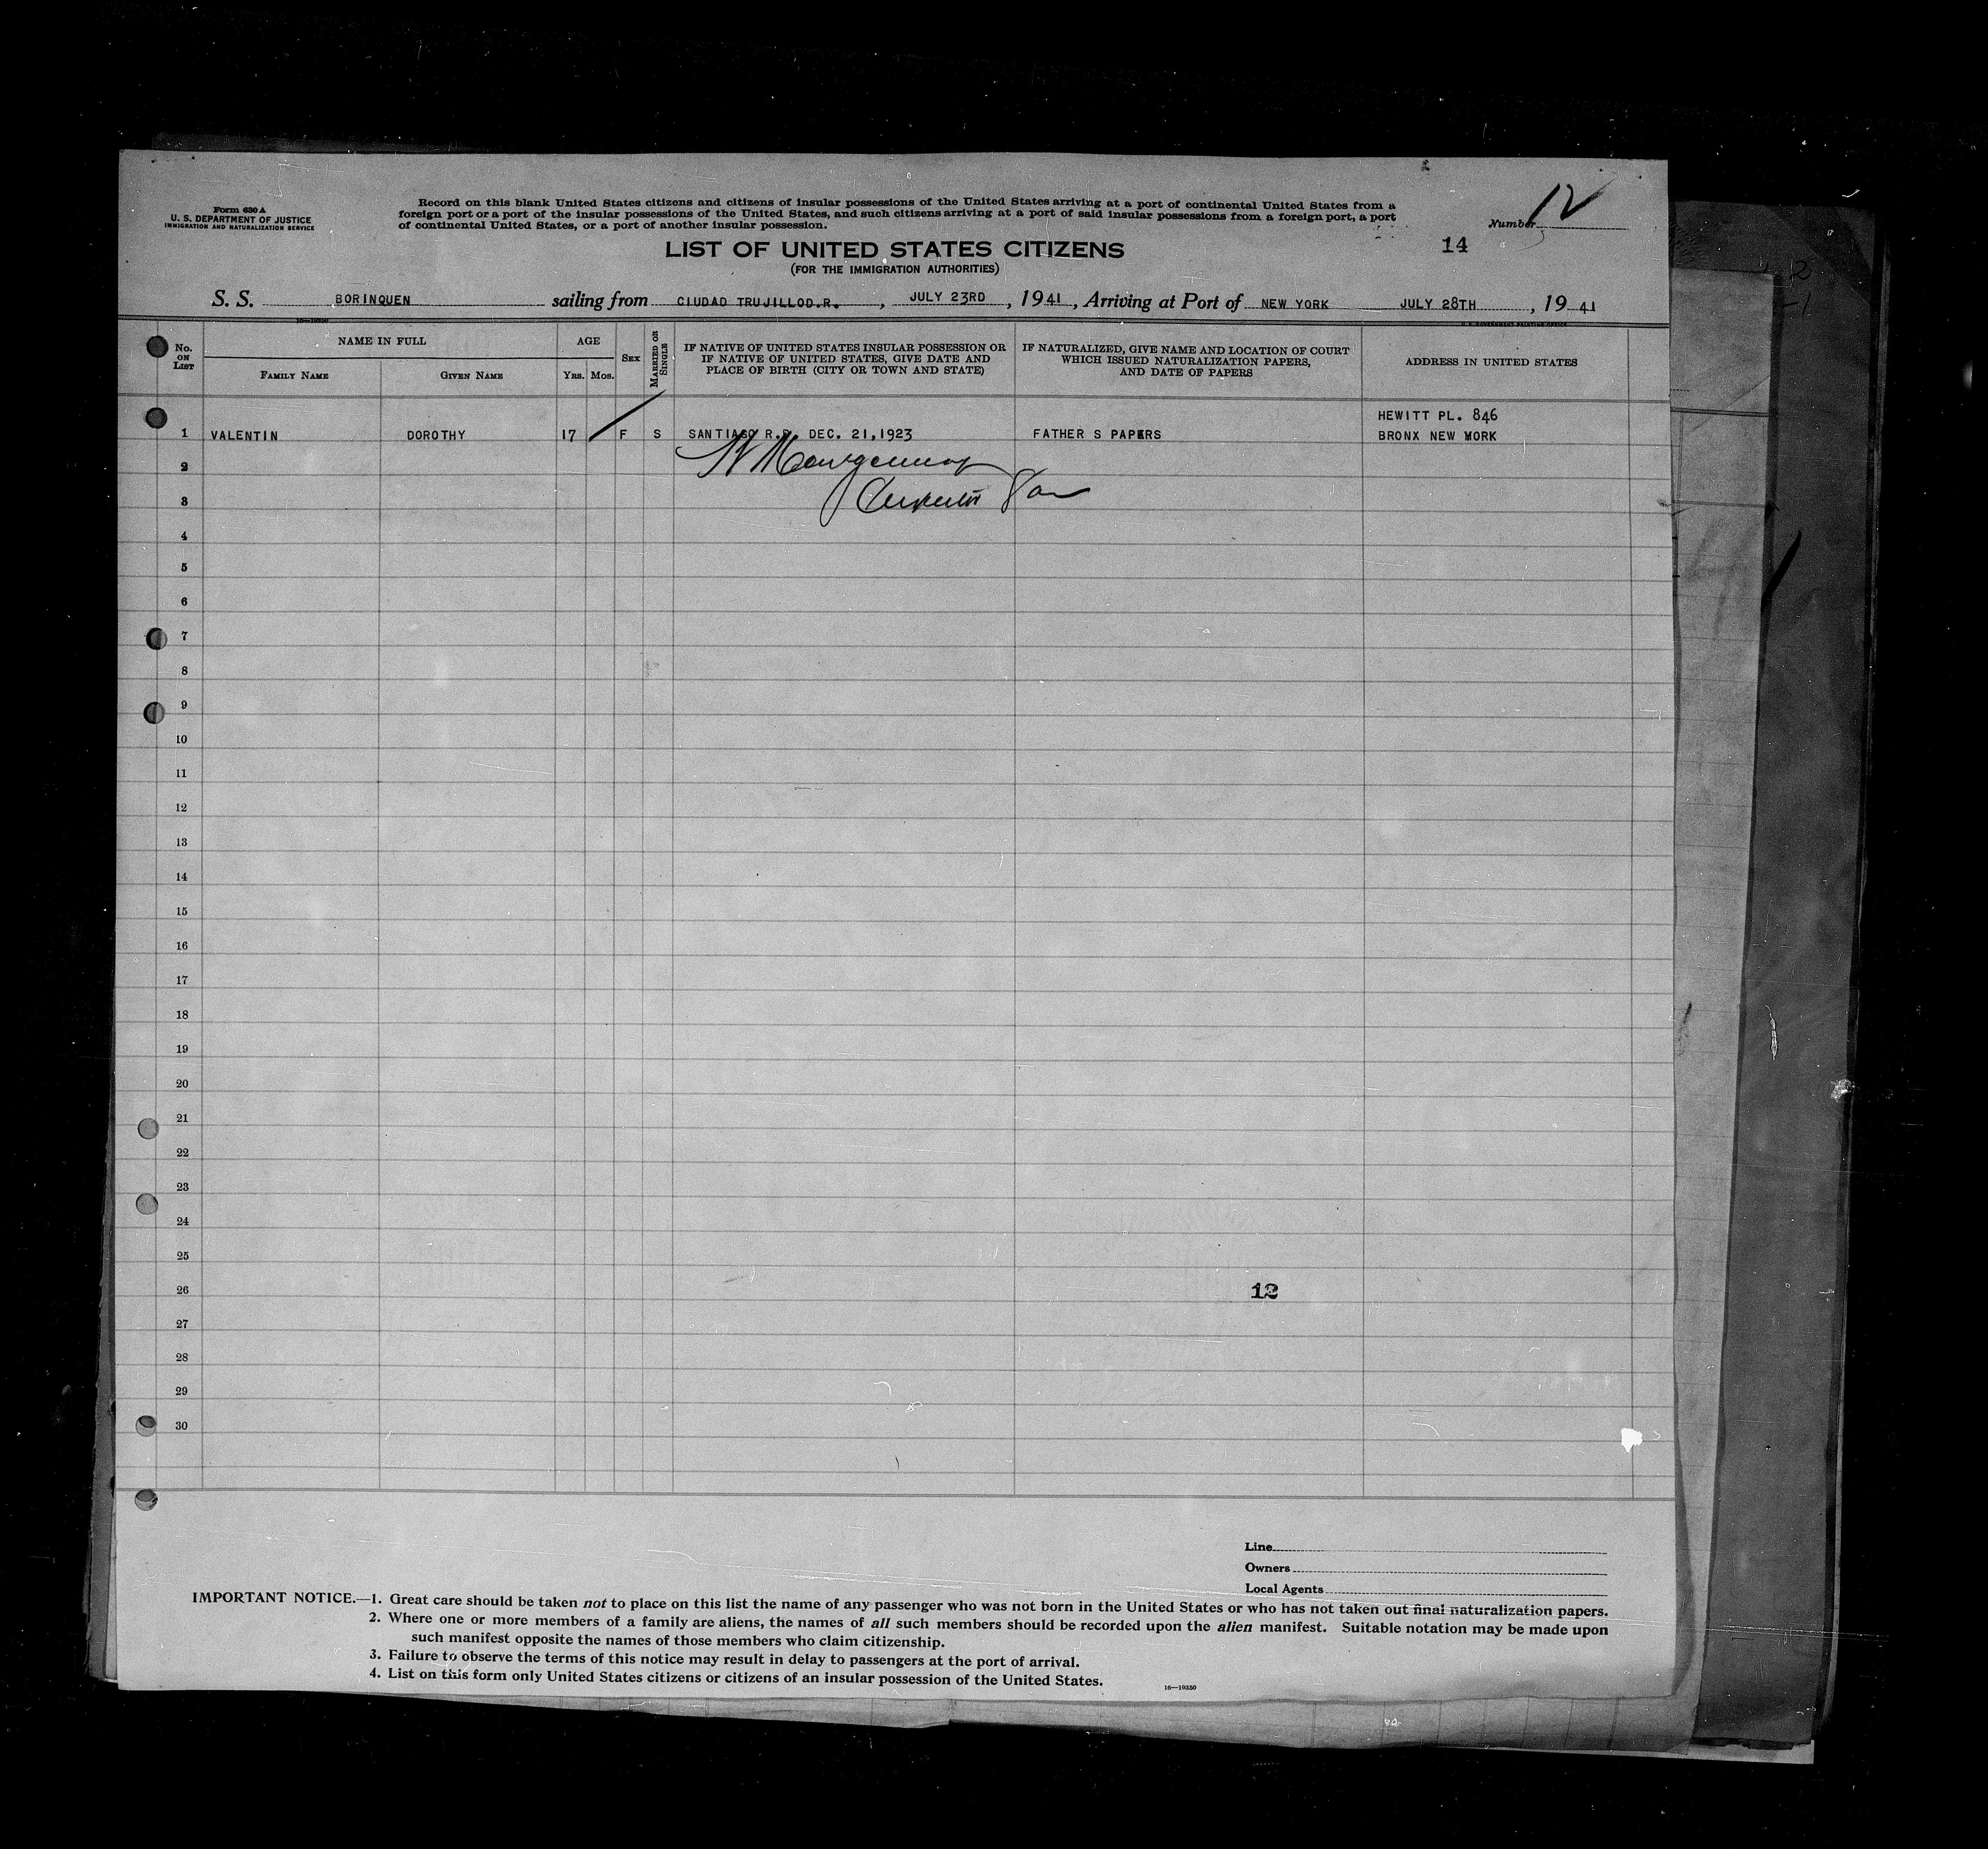 Form 630 A
U. S. DEPARTMENT OF JUSTICE
IMMIGRATION AND NATURALIZATION SERVICE
Record on this blank United States citizens and citizens of insular possessions of the United States arriving at a port of continental United States from a
foreign port or a port of the insular possessions of the United States, and such citizens arriving at a port of said insular possessions from a foreign port, a port
of continental United States, or a port of another insular possession.
Number 12
14
LIST OF UNITED STATES CITIZENS
(FOR THE IMMIGRATION AUTHORITIES)
S. S. BORINQUEN sailing from CIUDAD TRUJILLOD.R. , JULY 23RD , 1941 , Arriving at Port of NEW YORK JULY 28TH , 19 41
16—19350
U. S. GOVERNMENT PRINTING OFFICE
No. ON LIST
NAME IN FULL
FAMILY NAME
GIVEN NAME
AGE
YRS. MOS.
SEX
MARRIED OR SINGLE
IF NATIVE OF UNITED STATES INSULAR POSSESSION OR
IF NATIVE OF UNITED STATES, GIVE DATE AND
PLACE OF BIRTH (CITY OR TOWN AND STATE)
IF NATURALIZED, GIVE NAME AND LOCATION OF COURT
WHICH ISSUED NATURALIZATION PAPERS,
AND DATE OF PAPERS
ADDRESS IN UNITED STATES
HEWITT PL. 846
1 VALENTIN DOROTHY 17 F S SANTIAGO R.D. DEC. 21,1923 FATHER S PAPERS BRONX NEW WORK
2
3
4
5
6
7
8
9
10
11
12
13
14
15
16
17
18
19
20
21
22
23
24
25
26 12
27
28
29
30
Line
Owners
Local Agents
IMPORTANT NOTICE.—1. Great care should be taken not to place on this list the name of any passenger who was not born in the United States or who has not taken out final naturalization papers.
2. Where one or more members of a family are aliens, the names of all such members should be recorded upon the alien manifest. Suitable notation may be made upon
such manifest opposite the names of those members who claim citizenship.
3. Failure to observe the terms of this notice may result in delay to passengers at the port of arrival.
4. List on this form only United States citizens or citizens of an insular possession of the United States.
16—19350